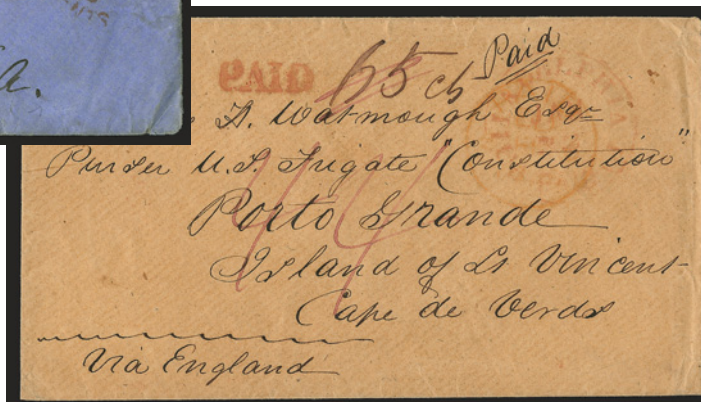 A.
PAID 65 cts Paid
D. Watmough Esqr
Purser U.S. Frigate "Constitution"
Porto Grande
Island of St Vincent
Cape de Verds
Via England